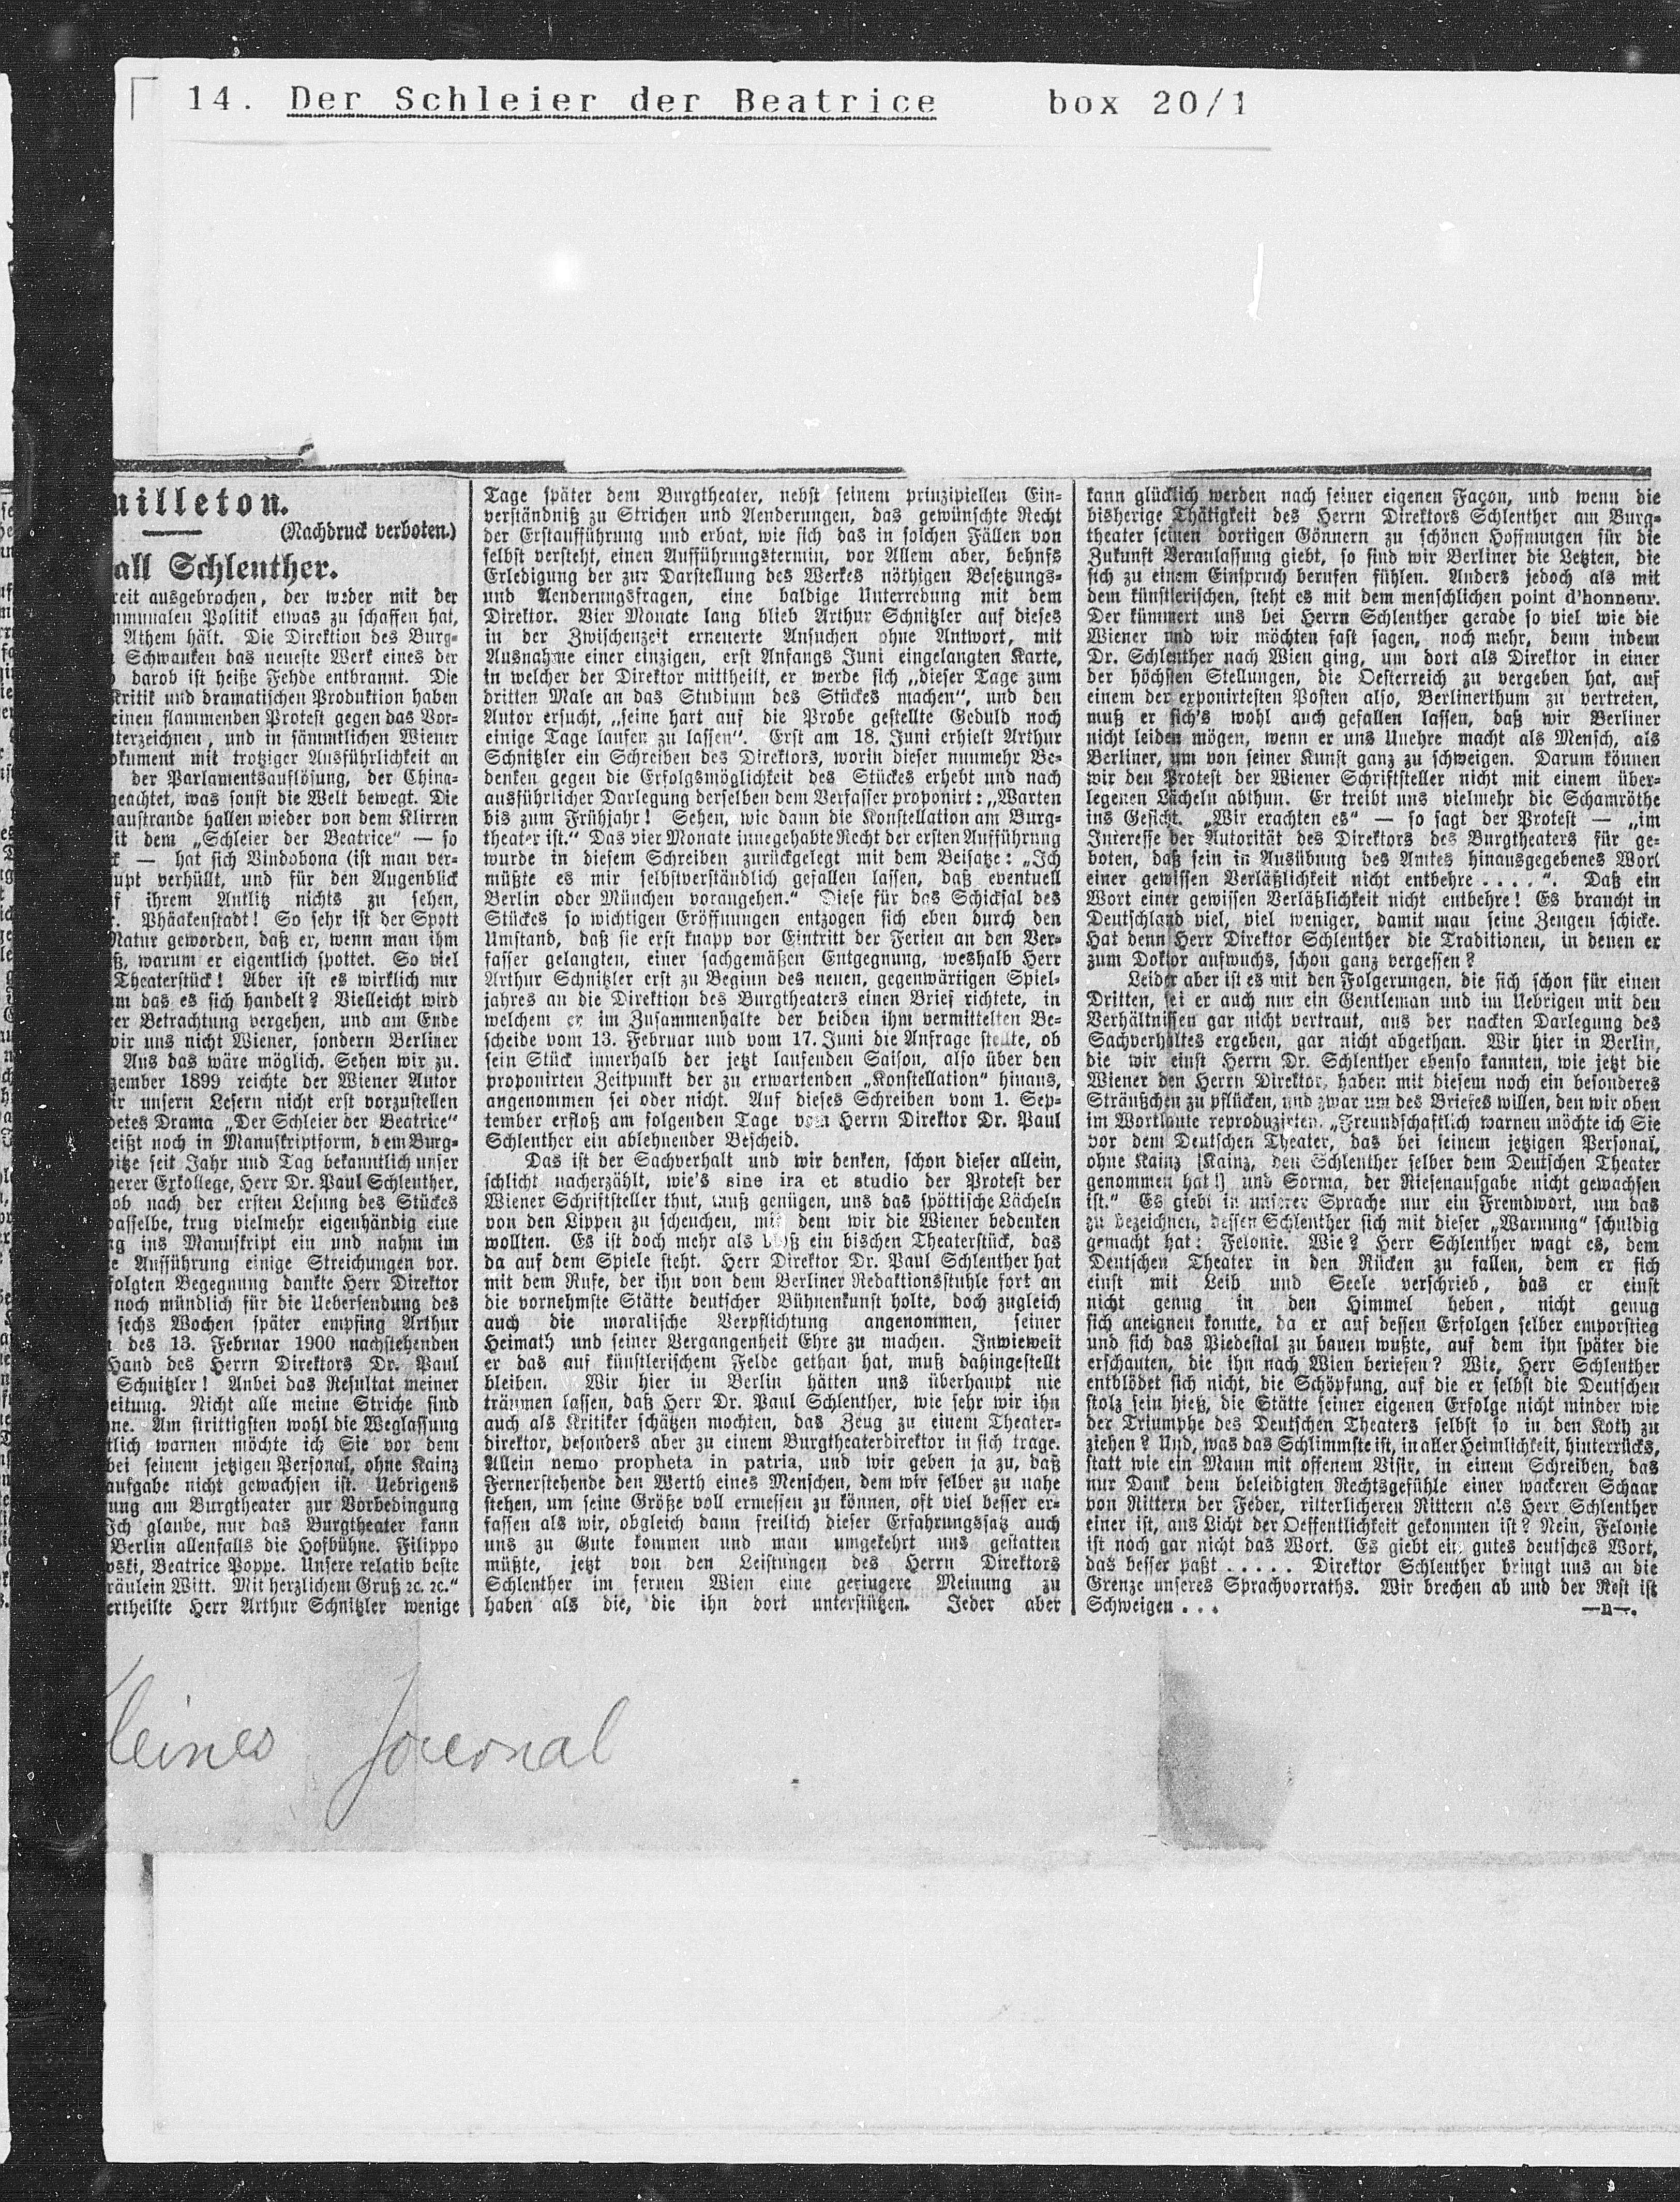 14. Der Schleier der Beatrice box 20/1
uilleton.
(Nachdruck verboten.)
all Schlenther.
reit ausgebrochen, der weder mit der
mmunalen Politik etwas zu schaffen hat,
Athem hält. Die Direktion des Burg-
Schwanken das neueste Werk eines der
darob ist heiße Fehde entbrannt. Die
Kritik und dramatischen Produktion haben
einen flammenden Protest gegen das Vor-
terzeichnen, und in sämmtlichen Wiener
okument mit trotziger Ausführlichkeit an
der Parlamentsauflösung, der China-
geachtet, was sonst die Welt bewegt. Die
austrande hallen wieder von dem Klirren
it dem „Schleier der Beatrice" — so
— hat sich Vindobona (ist man ver-
upt verhüllt, und für den Augenblick
f ihrem Antlitz nichts zu sehen,
r. Phäakenstadt! So sehr ist der Spott
Natur geworden, daß er, wenn man ihm
ß, warum er eigentlich spottet. So viel
Theaterstück! Aber ist es wirklich nur
um das es sich handelt? Vielleicht wird
rer Betrachtung vergehen, und am Ende
wir uns nicht Wiener, sondern Berliner
Aus das wäre möglich. Sehen wir zu.
zember 1899 reichte der Wiener Autor
ir unsern Lesern nicht erst vorzustellen
detes Drama „Der Schleier der Beatrice"
eißt noch in Manuskriptform, dem Burg-
pitze seit Jahr und Tag bekanntlich unser
gerer Exkollege, Herr Dr. Paul Schlenther,
ob nach der ersten Lesung des Stückes
dasselbe, trug vielmehr eigenhändig eine
ng ins Manuskript ein und nahm im
e Aufführung einige Streichungen vor.
folgten Begegnung dankte Herr Direktor
noch mündlich für die Uebersendung des
sechs Wochen später empfing Arthur
des 13. Februar 1900 nachstehenden
Hand des Herrn Direktors Dr. Paul
Schnitzler! Anbei das Resultat meiner
eitung. Nicht alle meine Striche sind
ne. Am strittigsten wohl die Weglassung
tlich warnen möchte ich Sie vor dem
bei seinem jetzigen Personal, ohne Kainz
aufgabe nicht gewachsen ist. Uebrigens
ung am Burgtheater zur Vorbedingung
Ich glaube, nur das Burgtheater kann
Berlin allenfalls die Hofbühne. Filippo
wski, Beatrice Poppe. Unsere relativ beste
räulein Witt. Mit herzlichem Gruß ꝛc. ꝛc."
ertheilte Herr Arthur Schnitzler wenige
Tage später dem Burgtheater, nebst seinem prinzipiellen Ein-
verständniß zu Strichen und Aenderungen, das gewünschte Recht
der Erstaufführung und erbat, wie sich das in solchen Fällen von
selbst versteht, einen Aufführungstermin, vor Allem aber, behufs
Erledigung der zur Darstellung des Werkes nöthigen Besetzungs-
und Aenderungsfragen, eine baldige Unterredung mit dem
Direktor. Vier Monate lang blieb Arthur Schnitzler auf dieses
in der Zwischenzeit erneuerte Ansuchen ohne Antwort, mit
Ausnahme einer einzigen, erst Anfangs Juni eingelangten Karte,
in welcher der Direktor mittheilt, er werde sich „dieser Tage zum
dritten Male an das Studium des Stückes machen", und den
Autor ersucht, „seine hart auf die Probe gestellte Geduld noch
einige Tage laufen zu lassen". Erst am 18. Juni erhielt Arthur
Schnitzler ein Schreiben des Direktors, worin dieser nunmehr Be-
denken gegen die Erfolgsmöglichkeit des Stückes erhebt und nach
ausführlicher Darlegung derselben dem Verfasser proponirt: „Warten
bis zum Frühjahr! Sehen, wie dann die Konstellation am Burg-
theater ist." Das vier Monate innegehabte Recht der ersten Aufführung
wurde in diesem Schreiben zurückgelegt mit dem Beisatze: „Ich
müßte es mir selbstverständlich gefallen lassen, daß eventuell
Berlin oder München vorangehen." Diese für das Schicksal des
Stückes so wichtigen Eröffnungen entzogen sich eben durch den
Umstand, daß sie erst knapp vor Eintritt der Ferien an den Ver-
fasser gelangten, einer sachgemäßen Entgegnung, weshalb Herr
Arthur Schnitzler erst zu Beginn des neuen, gegenwärtigen Spiel-
jahres an die Direktion des Burgtheaters einen Brief richtete, in
welchem er im Zusammenhalte der beiden ihm vermittelten Be-
scheide vom 13. Februar und vom 17. Juni die Anfrage stellte, ob
sein Stück innerhalb der jetzt laufenden Saison, also über den
proponirten Zeitpunkt der zu erwartenden „Konstellation" hinaus,
angenommen sei oder nicht. Auf dieses Schreiben vom 1. Sep-
tember erfloß am folgenden Tage vom Herrn Direktor Dr. Paul
Schlenther ein ablehnender Bescheid.
Das ist der Sachverhalt und wir denken, schon dieser allein,
schlicht nacherzählt, wie's sine ira et studio der Protest der
Wiener Schriftsteller thut, muß genügen, uns das spöttische Lächeln
von den Lippen zu scheuchen, mit dem wir die Wiener bedenken
wollten. Es ist doch mehr als bloß ein bischen Theaterstück, das
da auf dem Spiele steht. Herr Direktor Dr. Paul Schlenther hat
mit dem Rufe, der ihn von dem Berliner Redaktionsstuhle fort an
die vornehmste Stätte deutscher Bühnenkunst holte, doch zugleich
auch die moralische Verpflichtung angenommen, seiner
Heimath und seiner Vergangenheit Ehre zu machen. Inwieweit
er das auf künstlerischem Felde gethan hat, muß dahingestellt
bleiben. Wir hier in Berlin hätten uns überhaupt nie
träumen lassen, daß Herr Dr. Paul Schlenther, wie sehr wir ihn
auch als Kritiker schätzen mochten, das Zeug zu einem Theater-
direktor, besonders aber zu einem Burgtheaterdirektor in sich trage.
Allein nemo propheta in patria, und wir geben ja zu, daß
Fernerstehende den Werth eines Menschen, dem wir selber zu nahe
stehen, um seine Größe voll ermessen zu können, oft viel besser er-
fassen als wir, obgleich dann freilich dieser Erfahrungssatz auch
uns zu Gute kommen und man umgekehrt uns gestatten
müßte, jetzt von den Leistungen des Herrn Direktors
Schlenther im fernen Wien eine geringere Meinung zu
haben als die, die ihn dort unterstützen. Jeder aber
kann glücklich werden nach seiner eigenen Façon, und wenn die
bisherige Thätigkeit des Herrn Direktors Schlenther am Burg-
theater seinen dortigen Gönnern zu schönen Hoffnungen für die
Zukunft Veranlassung giebt, so sind wir Berliner die Letzten, die
sich zu einem Einspruch berufen fühlen. Anders jedoch als mit
dem künstlerischen, steht es mit dem menschlichen point d'honneur.
Der kümmert uns bei Herrn Schlenther gerade so viel wie die
Wiener und wir möchten fast sagen, noch mehr, denn indem
Dr. Schlenther nach Wien ging, um dort als Direktor in einer
der höchsten Stellungen, die Oesterreich zu vergeben hat, auf
einem der exponirtesten Posten also, Berlinerthum zu vertreten,
muß er sich's wohl auch gefallen lassen, daß wir Berliner
nicht leiden mögen, wenn er uns Unehre macht als Mensch, als
Berliner, um von seiner Kunst ganz zu schweigen. Darum können
wir den Protest der Wiener Schriftsteller nicht mit einem über-
legenen Lächeln abthun. Er treibt uns vielmehr die Schamröthe
ins Gesicht. „Wir erachten es" — so sagt der Protest — „im
Interesse der Autorität des Direktors des Burgtheaters für ge-
boten, daß sein in Ausübung des Amtes hinausgegebenes Wort
einer gewissen Verläßlichkeit nicht entbehre . . . .". Daß ein
Wort einer gewissen Verläßlichkeit nicht entbehre! Es braucht in
Deutschland viel, viel weniger, damit man seine Zeugen schicke.
Hat denn Herr Direktor Schlenther die Traditionen, in denen er
zum Doktor aufwuchs, schon ganz vergessen?
Leider aber ist es mit den Folgerungen, die sich schon für einen
Dritten, sei er auch nur ein Gentleman und im Uebrigen mit den
Verhältnissen gar nicht vertraut, aus der nackten Darlegung des
Sachverhaltes ergeben, gar nicht abgethan. Wir hier in Berlin,
die wir einst Herrn Dr. Schlenther ebenso kannten, wie jetzt die
Wiener den Herrn Direktor, haben mit diesem noch ein besonderes
Sträußchen zu pflücken, und zwar um des Briefes willen, den wir oben
im Wortlaute reproduzirten. „Freundschaftlich warnen möchte ich Sie
vor dem Deutschen Theater, das bei seinem jetzigen Personal,
ohne Kainz [Kainz, den Schlenther selber dem Deutschen Theater
genommen hat!] und Sorma, der Riesenaufgabe nicht gewachsen
ist." Es giebt in unserer Sprache nur ein Fremdwort, um das
zu bezeichnen, dessen Schlenther sich mit dieser „Warnung" schuldig
gemacht hat: Felonie. Wie? Herr Schlenther wagt es, dem
Deutschen Theater in den Rücken zu fallen, dem er sich
einst mit Leib und Seele verschrieb, das er einst
nicht genug in den Himmel heben, nicht genug
sich aneignen konnte, da er auf dessen Erfolgen selber emporstieg
und sich das Piedestal zu bauen wußte, auf dem ihn später die
erschauten, die ihn nach Wien beriefen? Wie, Herr Schlenther
entblödet sich nicht, die Schöpfung, auf die er selbst die Deutschen
stolz sein hieß, die Stätte seiner eigenen Erfolge nicht minder wie
der Triumphe des Deutschen Theaters selbst so in den Koth zu
ziehen? Und, was das Schlimmste ist, in aller Heimlichkeit, hinterrücks,
statt wie ein Mann mit offenem Visir, in einem Schreiben, das
nur Dank dem beleidigten Rechtsgefühle einer wackeren Schaar
von Rittern der Feder, ritterlicheren Rittern als Herr Schlenther
einer ist, ans Licht der Oeffentlichkeit gekommen ist? Nein, Felonie
ist noch gar nicht das Wort. Es giebt ein gutes deutsches Wort,
das besser paßt . . . . . Direktor Schlenther bringt uns an die
Grenze unseres Sprachvorraths. Wir brechen ab und der Rest ist
Schweigen . . .
—n—.
Kleines Journal